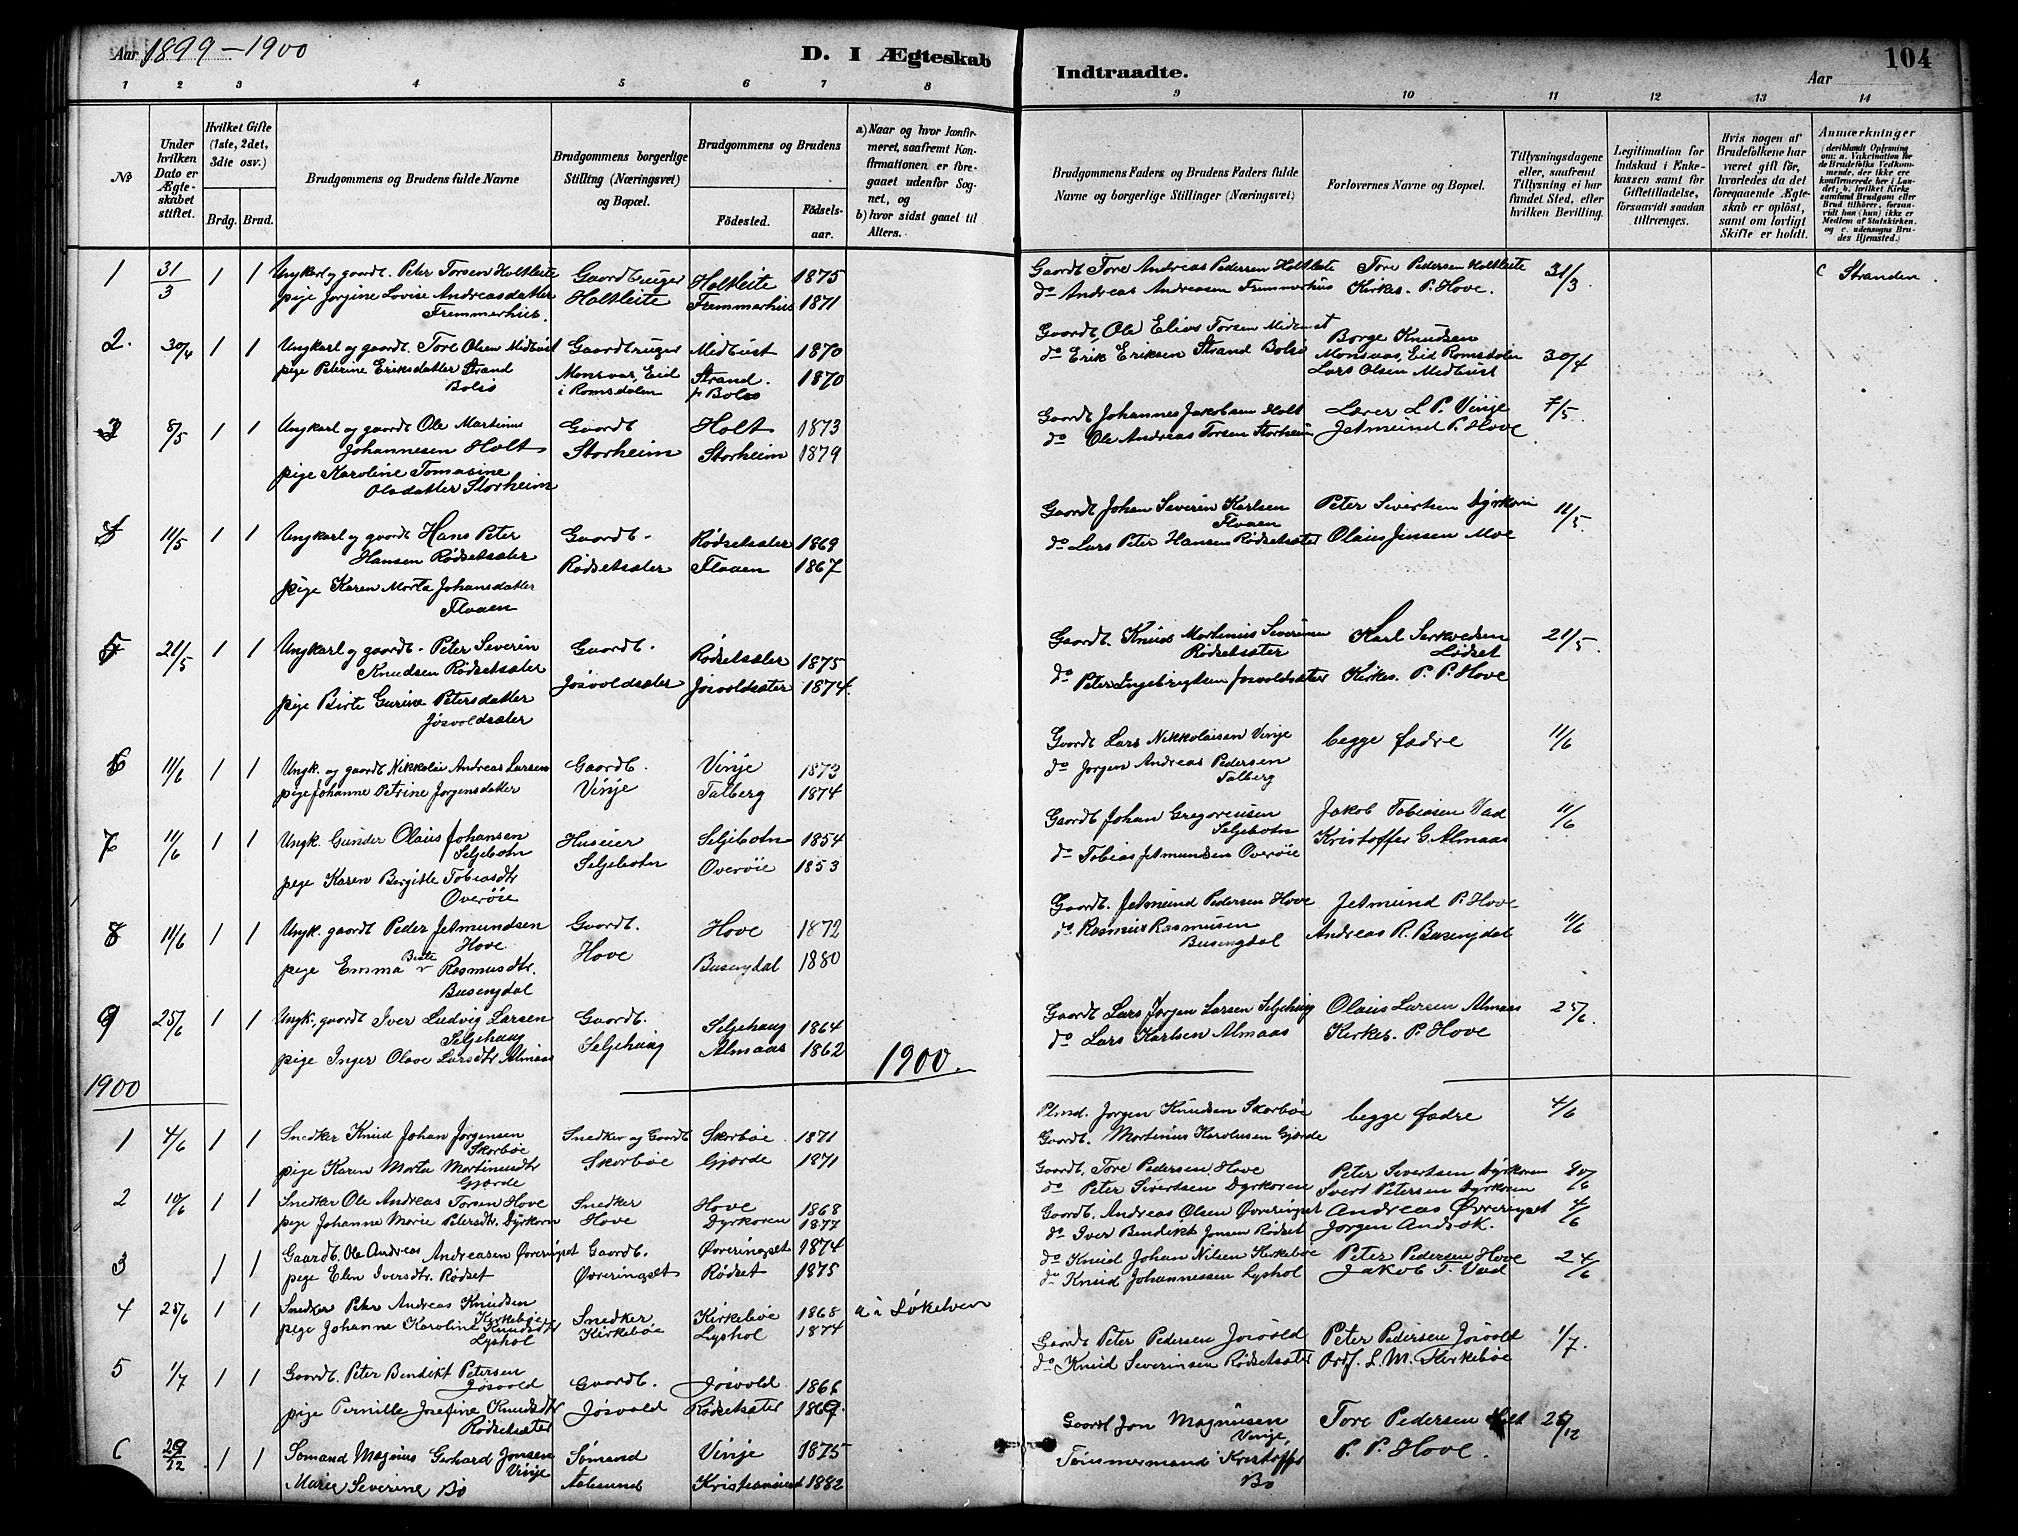 Aar 1899-1900
D. I Ægteskab
Indtraadte.
Aar
104
1 2 3 4 5 6 7 8
9 10 11 12 13 14
No
Under hvilken Dato er Ægteskabet stiftet.
Hvilket Gifte (1ste, 2det, 3die osv.)
Brdg. Brud.
Brudgommens og Brudens fulde Navne
Brudgommens borgerlige Stilling (Næringsvei) og Bopæl.
Brudgommens og Brudens
Fødested.
Fødselsaar.
a) Naar og hvor konfirmeret, saafremt Konfirmationen er foregaaet udenfor Sognet, og
b) hvor sidst gaaet til Alters.
Brudgommens Faders og Brudens Faders fulde Navne og borgerlige Stillinger (Næringsvei)
Forlovernes Navne og Bopæl.
Tillysningsdagene eller, saafremt Tillysning ei har fundet Sted, efter hvilken Bevilling.
Legitimation for Indskud i Enkekassen samt for Giftetilladelse, forsaavidt saadan tiltrænges.
Hvis nogen af Brudefolkene har været gift før, hvorledes da det foregaaende Ægteskab er opløst, samt om lovligt Skifte er holdt.
Anmærkninger
(deriblandt Oplysning om: a. Vaccination for de Brudefolks Vedkommende, der ikke ere konfirmerede her i Landet; b. hvilket Kirkesamfund Brudgom eller Brud tilhører, forsaavidt han (hun) ikke er Medlem af Statskirken, og c. udensogns Brudes Hjemsted.)
1 31/3 1 1 Ungkarl og gaardt. Peter Torsen Holtleite Gaardbruger Holtleite 1875
pige Jorgine Lovise Andreasdatter Holtleite Fremmerhus 1871
Fremmerhus.
Gaardt Tore Andreas Pedersen Holtleite Tore Pedersen Holtleite 31/3 c Stranden.
do Andreas Andreasen Fremmerhus Kirkes. P. Hove.
2. 30/4 1 1 Ungkarl og gaardt. Tore Olsen Midtust Gaardbruger Midtust 1870
pige Peterine Eriksdatter Strand Monsaas, Eid Strand. 1870
Bolsø i Romsdalen p Bolsø
Gaardt, Ole Elias Torsen Midtust Borge Knudsen
do Erik Eriksen Strand Bolsø Monsaas, Eid Romsdalen 30/4
Lars Olsen Midtust
3 8/5 1 1 Ungkarl og gaardt Ole Martinus Gaardt Holt 1873
Johannesen Holt Storheim Storheim 1879
pige Karoline Tomasine
Olsdatter Storheim
Gaardt Johannes Jakobsen Holt Lærer L. P. Vinje 7/5
do Ole Andreas Torsen Storheim Jetmund P. Hove
4 11/5 1 1 Ungkarl og gaardt Hans Peter Gaardt. Rødsetsæter 1869
Hansen Rødsetsæter Rødsetsæter Flaaen 1867
pige Karen Marta Johansdatter
Flaaen
Gaardt Johan Severin Karlsen Peter Sivertsen Dyrkorn 11/5
Flaaen
do Lars Peter Hansen Rødsetsæter Olaus Jensen Moe
5 21/5 1 1 Ungkarl og gaardt. Peter Severin Gaardt. Rødsetsæter 1875
Knudsen Rødsetsæter Jøsvoldsæter Jøsvoldsæter 1874.
pige Birte Gurine Petersdatter
Jøsvoldsæter
Gaardt. Knud Martinius Severinsen Karl 21/5
Rødsetsæter Lødset
do Peter Ingebrigtsen Jøsvoldsæter Kirkes. P. P. Hove
6 11/6 1 1 Ungk. og gaardt Nikkolai Andreas Larsen Gaardt. Vinje 1873
pige Johanne Petrine Jørgensdatter Vinje Talberg 1874
Gaardt Lars Nikkolaisen Vinje begge fædre 11/6
do Jørgen Andreas Pedersen
Talberg
7 11/6 1 1 Ungk. Gunder Olaus Johansen Huseier Seljebotn 1854
Seljebotn Seljebotn Overøie 1853
pige Karen Bergitte Tobiasdtr
Overøie
Gaardt Johan Gregoreusen Jakob Tobiasen Vad 11/6
Seljebotn Kristoffer G. Almaas
do Tobias Jetmundsen Overøie
8 11/6 1 1 Ungk. gaardt Peder Jetmundsen Gaardt. Hove 1872
Hove Hove Busengdal 1880
pige Emma Beate Rasmusdtr.
Busengdal
Gaardt. Jetmund Pedersen Hove Jetmund P. Hove 11/6
do Rasmus Rasmusen Andreas R. Busengdal
Busengdal
9 25/6 1 1 Ungk. gaardt Iver Ludvig Larsen Gaardt. Seljehaug 1864
Seljehaug Seljehaug Almaas 1862
pige Inger Olave Larsdtr Almaas
Gaardt Lars Jørgen Larsen Seljehaug Olaus Larsen Almaas 25/6.
do Lars Karlsen Almaas Kirkes. P. Hove
1900 1900.
1 4/6 1 1 Snedker Knud Johan Jørgensen Snedker og Gaardt Skorbøe 1871
Skorbøe Skorbøe Gjærde 1871
pige Karen Marta Martinusdtr
Gjærde
Plmd. Jørgen Knudsen Skorbøe begge fædre 4/6
Gaardt. Martinus Karolusen Gjærde
2 10/6 1 1 Snedker Ole Andreas Torsen Hove Snedker Hove 1868
pige Johanne Marie Petersdtr. Dyrkorn Hove Dyrkoren 1877
Gaardt. Tore Pedersen Hove Peter Sivertsen Dyrkoren
do Peter Sivertsen Dyrkoren Sivert Petersen Dyrkoren
3 1 1 Gaardt. Ole Andreas Andreasen Øvreringset Gaardt. Øvreringset 1874
pige Elen Iversdtr. Rødset Øvreringset Rødset 1875
Gaardt. Andreas Olsen Øvreringset Andreas Øvreringset 4/6
do Iver Bendikt Jonsen Rødset Jørgen Andsøk.
4 25/6 1 1 Snedker Peter Andreas Knudsen Snedker Kirkebøe 1868 a i Søkelven
Kirkebøe Kirkebøe Lyshol 1874
pige Johanne Karoline Knudsdtr
Lyshol
do Knud Johan Nilsen Kirkebøe Peter Pedersen Hove 24/6
do Knud Johannessen Lyshol Jakob T. Vad
5 1/7 1 1 Gaardt. Peter Bendikt Petersen Gaardt. Jøsvold 1866
Jøsvold Jøsvold Rødsetsæter 1869.
pige Pernille Josefine Knudsdtr
Rødsetsæter
Gaardt Peter Pedersen Jøsvold Peter Pedersen Jøsvold 1/7.
do Knud Severinsen Rødsetsæter Ordf. L. M. Kirkebøe
6 29/12 1 1 Sømand Magnus Gerhard Jonsen Sømand Vinje 1875
Vinje Aalesund Kristiansund 1882
Marie Severine Bø
Gaardt Jon Magnusen Tore Pedersen Holt 26/12
Vinje, P. P. Hove.
Tømmermand Kristoffer
Bø